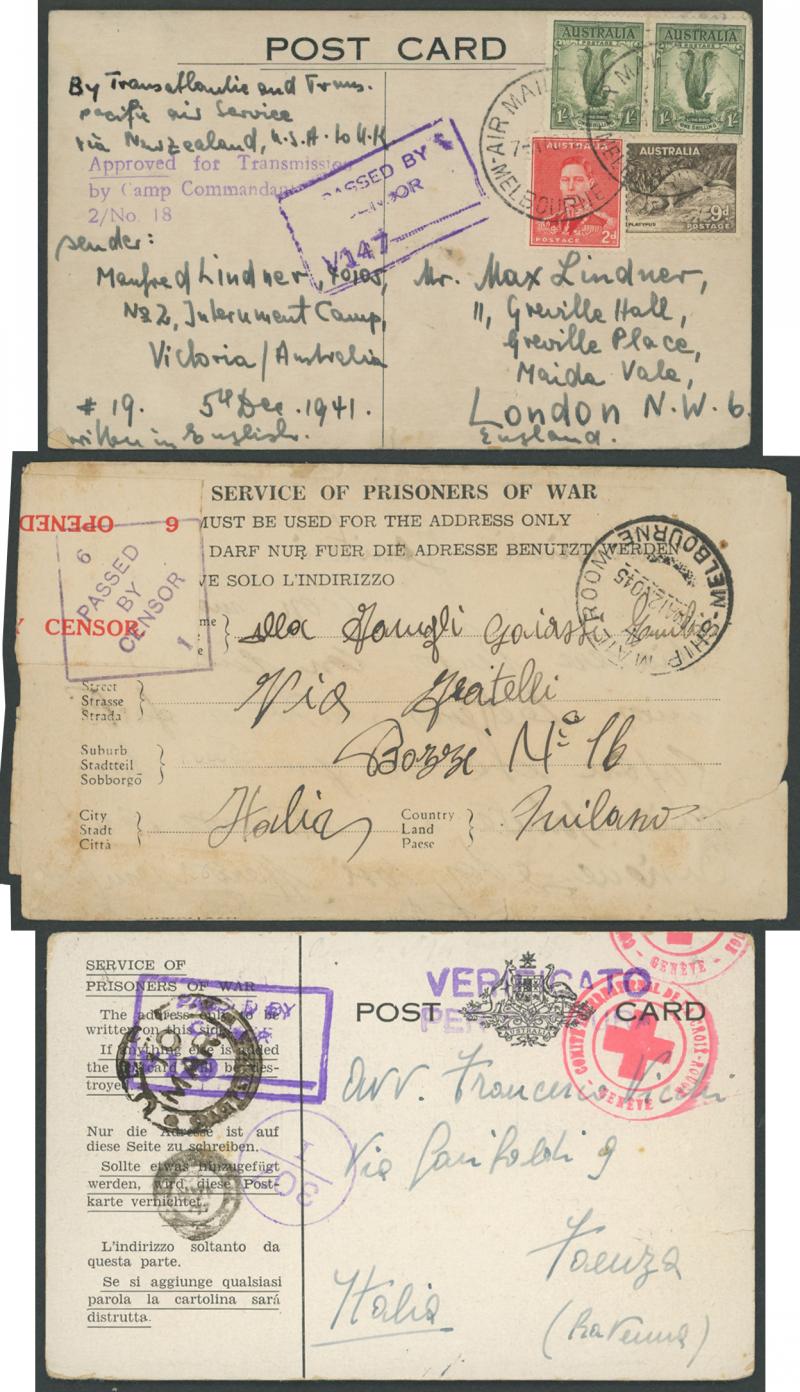 POST CARD
By Transatlantic and Trans-
pacific air Service
via Newzealand, U.S.A. to U.K
Approved for Transmission
by Camp Commandant
2/No. 18
PASSED BY
CENSOR
V147
AIR MAIL
MELBOURNE
AUSTRALIA
POSTAGE
1/-
ONE SHILLING
AUSTRALIA
POSTAGE
1/-
ONE SHILLING
AUSTRALIA
POSTAGE
2d
AUSTRALIA
PLATYPUS
9d
POSTAGE
sender:
Manfred Lindner, 40105,
No 2, Internment Camp,
Victoria/Australia
# 19. 5th Dec. 1941.
written in English.
Mr. Max Lindner,
11, Greville Hall,
Greville Place,
Maida Vale,
London N.W. 6.
England.
SERVICE OF PRISONERS OF WAR
MUST BE USED FOR THE ADDRESS ONLY
DARF NUR FUER DIE ADRESSE BENUTZT WERDEN
VE SOLO L'INDIRIZZO
OPENED 6
CENSOR
6
PASSED
BY
CENSOR
1
SHIP MAIL ROOM
MELBOURNE
Via Fratelli
Street
Strasse
Strada
Bozzi No 16
Suburb
Stadtteil
Sobborgo
Italia
Milano
City
Stadt
Città
Country
Land
Paese
SERVICE OF
PRISONERS OF WAR
The address only to be
written on this side.
If anything else is added
the postcard will be des-
troyed.
Nur die Adresse ist auf
diese Seite zu schreiben.
Sollte etwas hinzugefügt
werden, wird diese Post-
karte vernichtet.
L'indirizzo soltanto da
questa parte.
Se si aggiunge qualsiasi
parola la cartolina sará
distrutta.
POST CARD
AUSTRALIA
VERIFICATO
PER
MAR
1/30
GENÈVE
CROIX-ROUGE
GENÈVE
Avv. Francesco
Via Garibaldi 9
Faenza
(Ravenna)
Italia